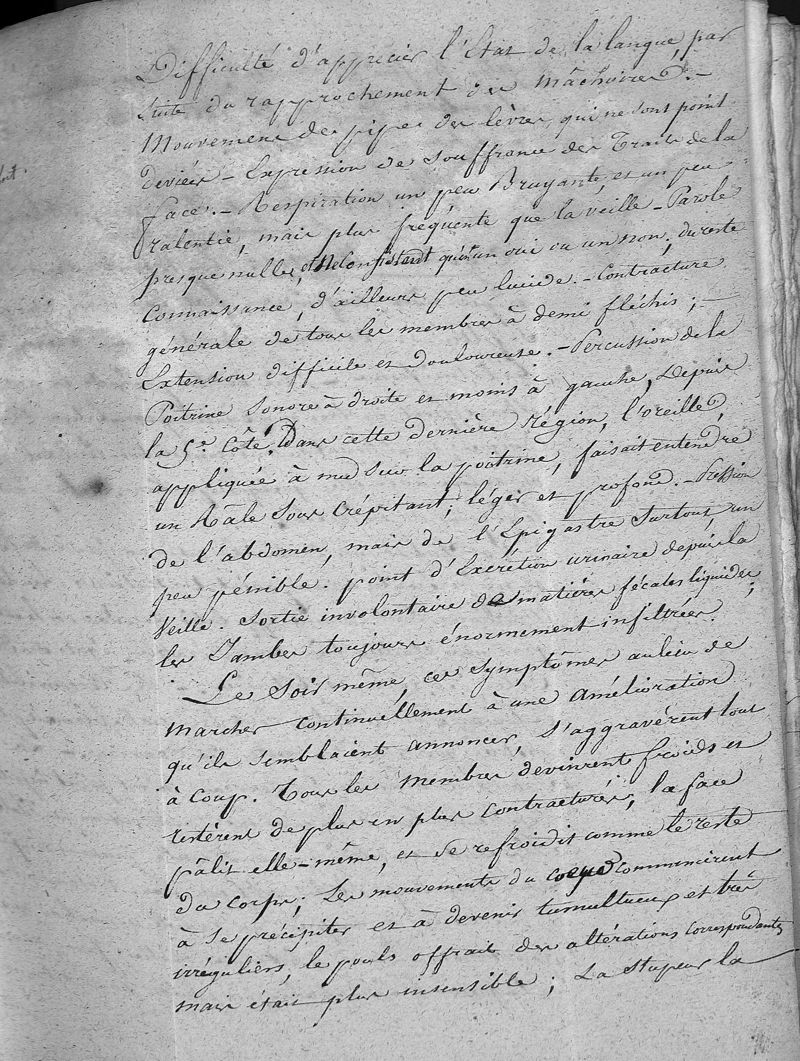 Difficulté d'apprécier l'État de la langue, par
suite du rapprochement des mâchoires. —
Mouvement de pipe des lèvres, qui ne sont point
deviées — Expression de souffrance des Traits de la
face. — Respiration un peu Bruyante, et un peu
ralentie, mais plus fréquente que la veille — Parole
presque nulle, et ne consistant qu'en un oui ou un non; du reste
Connaissance, d'ailleurs peu lucide. — Contracture
générale de tous les membres à demi fléchis; —
Extension difficile et Douloureuse. — Percussion de la
Poitrine sonore à droite et moins à gauche, Depuis
la 5e Côte. Dans cette dernière région, l'oreille,
appliquée à nud sur la poitrine, faisait entendre
un Râle sous Crépitant, léger et profond. — Pression
de l'abdomen, mais de l'Epigastre surtout, un
peu pénible. point d'Excrétion urinaire depuis la
Veille. Sortie involontaire de matières fécales liquides;
les Jambes toujours énormement infiltrées.
Le Soir même, ces symptômes au lieu de
marcher continuellement à une amélioration
qu'ils semblaient annoncer, s'aggravèrent tout
à Coup. Tous les membres devinrent froids et
restèrent de plus en plus contracturés, la face
pâlit elle-même, et se refroidit comme le reste
du Corps; Les mouvements du coeur commencèrent
à se précipiter et à devenir tumultueux et très
irréguliers, le pouls offrait des altérations correspondantes
mais était plus insensible; La Stupeur la